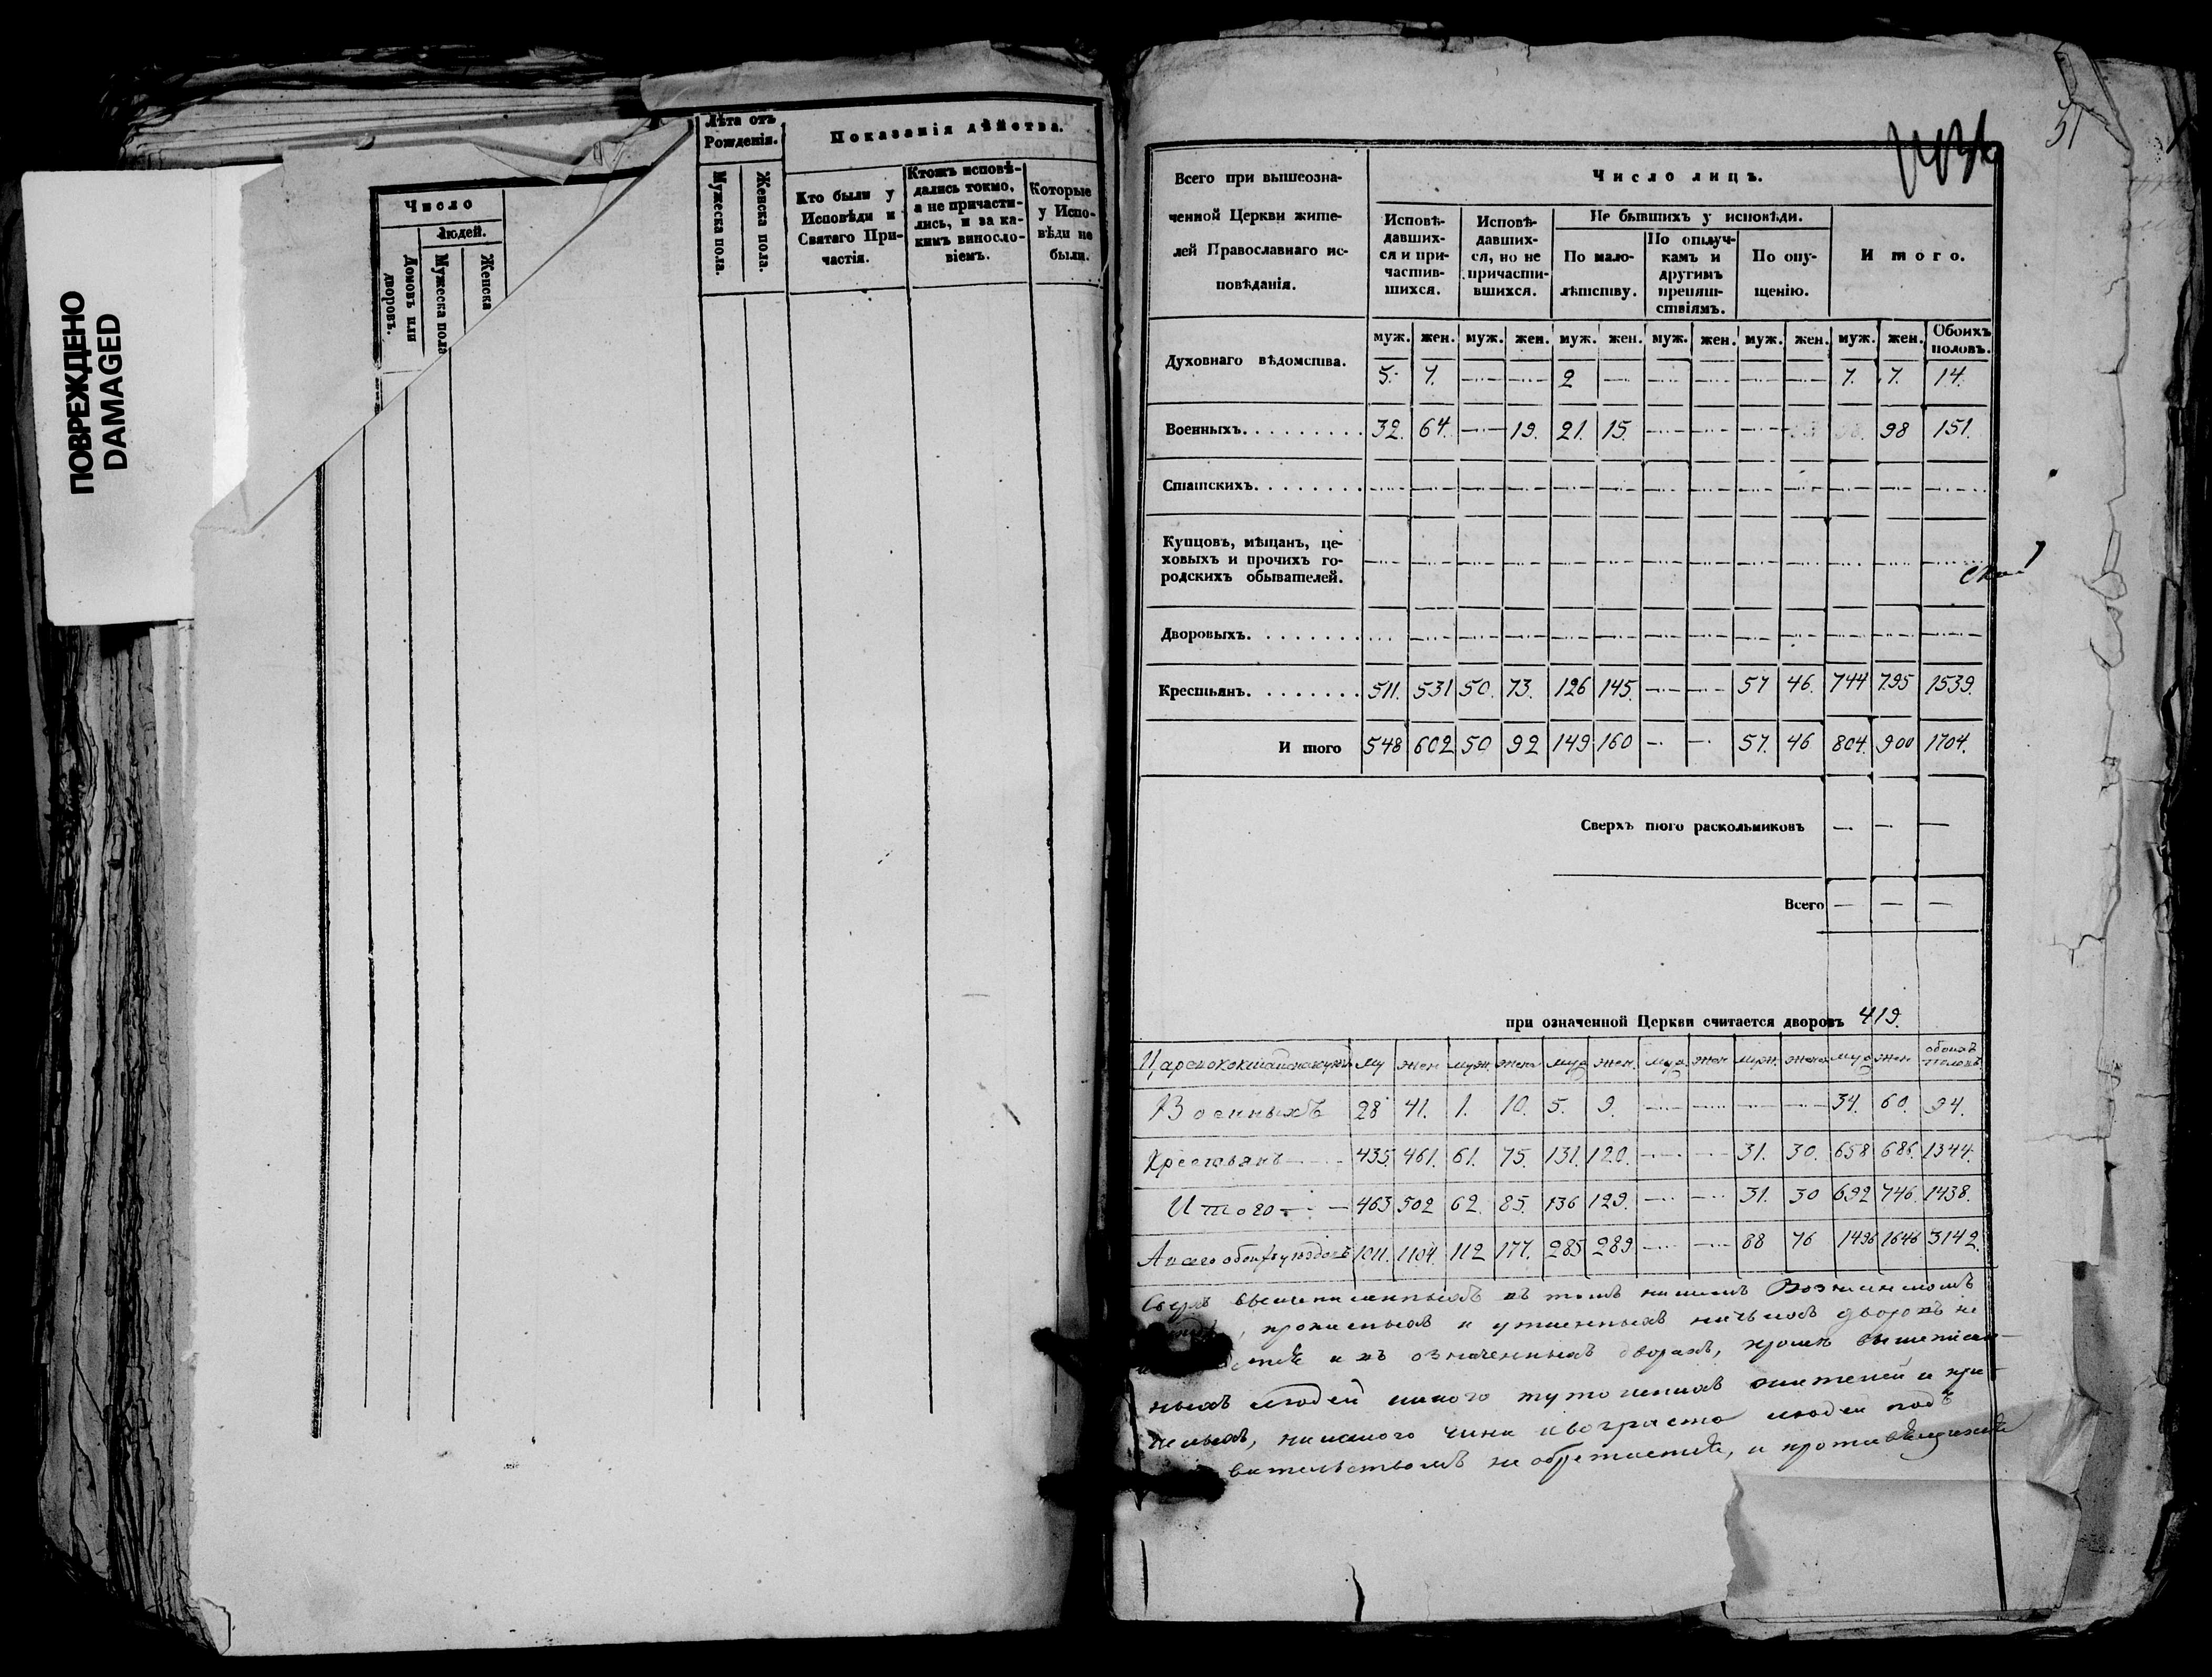 ПОВРЕЖДЕНО
DAMAGED
Число
людей.
Домовъ или дворовъ.
Мужеска пола
Женска
Лѣта отъ Рожденія.
Мужеска пола.
Женска пола.
Показанія дѣйства.
Кто были у
Исповѣди и
Святаго При-
частія.
Ктожъ исповѣ-
дались токмо,
а не причасти-
лись, и за ка-
кимъ винословіемъ.
Которые
у Испо-
вѣди не
были.
51
Всего при вышеозна-
ченной Церкви жите-
лей Православнаго ис-
повѣданія.
Число лицъ.
Исповѣ-
давших-
ся и при-
частив-
шихся.
Исповѣ-
давших-
ся, но не
причасти-
вшихся.
Не бывшихъ у исповѣди.
По мало-
лѣтству.
По отлуч-
камъ и
другимъ
препят-
ствіямъ.
По опу-
щенію.
Итого.
муж. жен. муж. жен. муж. жен. муж. жен. муж. жен. муж. жен. Обоихъ половъ.
Духовнаго вѣдомства. 5. 7. — — 2 — — — — — 7. 7. 14.
Военныхъ. 32. 64. — 19. 21. 15. — — — — 98 151.
Статскихъ. — — — — — — — — — — — — —
Купцовъ, мѣщанъ, це-
ховыхъ и прочихъ го-
родскихъ обывателей. — — — — — — — — — — — — —
Дворовыхъ. — — — — — — — — — — — — —
Крестьянъ. 511. 531 50. 73. 126 145. — — 57 46. 744 795 1539.
И того 548 602 50 92 149 160 — — 57. 46 804. 900 1704.
Сверхъ того раскольниковъ — — —
Всего — — —
при означенной Церкви считается дворовъ 419.
му жен муж. жен муж жен. муж. жен муж. жен муж жен обоихъ половъ.
Военныхъ 28 41. 1. 10. 5. 9. — — — — 34. 60. 94.
Крестьянъ 435. 461. 61. 75. 131. 120. — — 31. 30. 658 686. 1344.
Итого 463 502 62. 85. 136 129. — — 31. 30 692 746. 1438.
А всего обоихъ уѣздовъ 1011. 1104. 112 177. 285 289 — — 88 76 1496 1646 3142.
Сверхъ вышеписанныхъ въ томъ
и утаенныхъ ничьихъ дворовъ не
и въ означенныхъ дворахъ, кромѣ вышеписан-
ныхъ людей никого тутошнихъ жителей и при-
шлыхъ, никакого чина и возраста людей подъ
не обретается, и